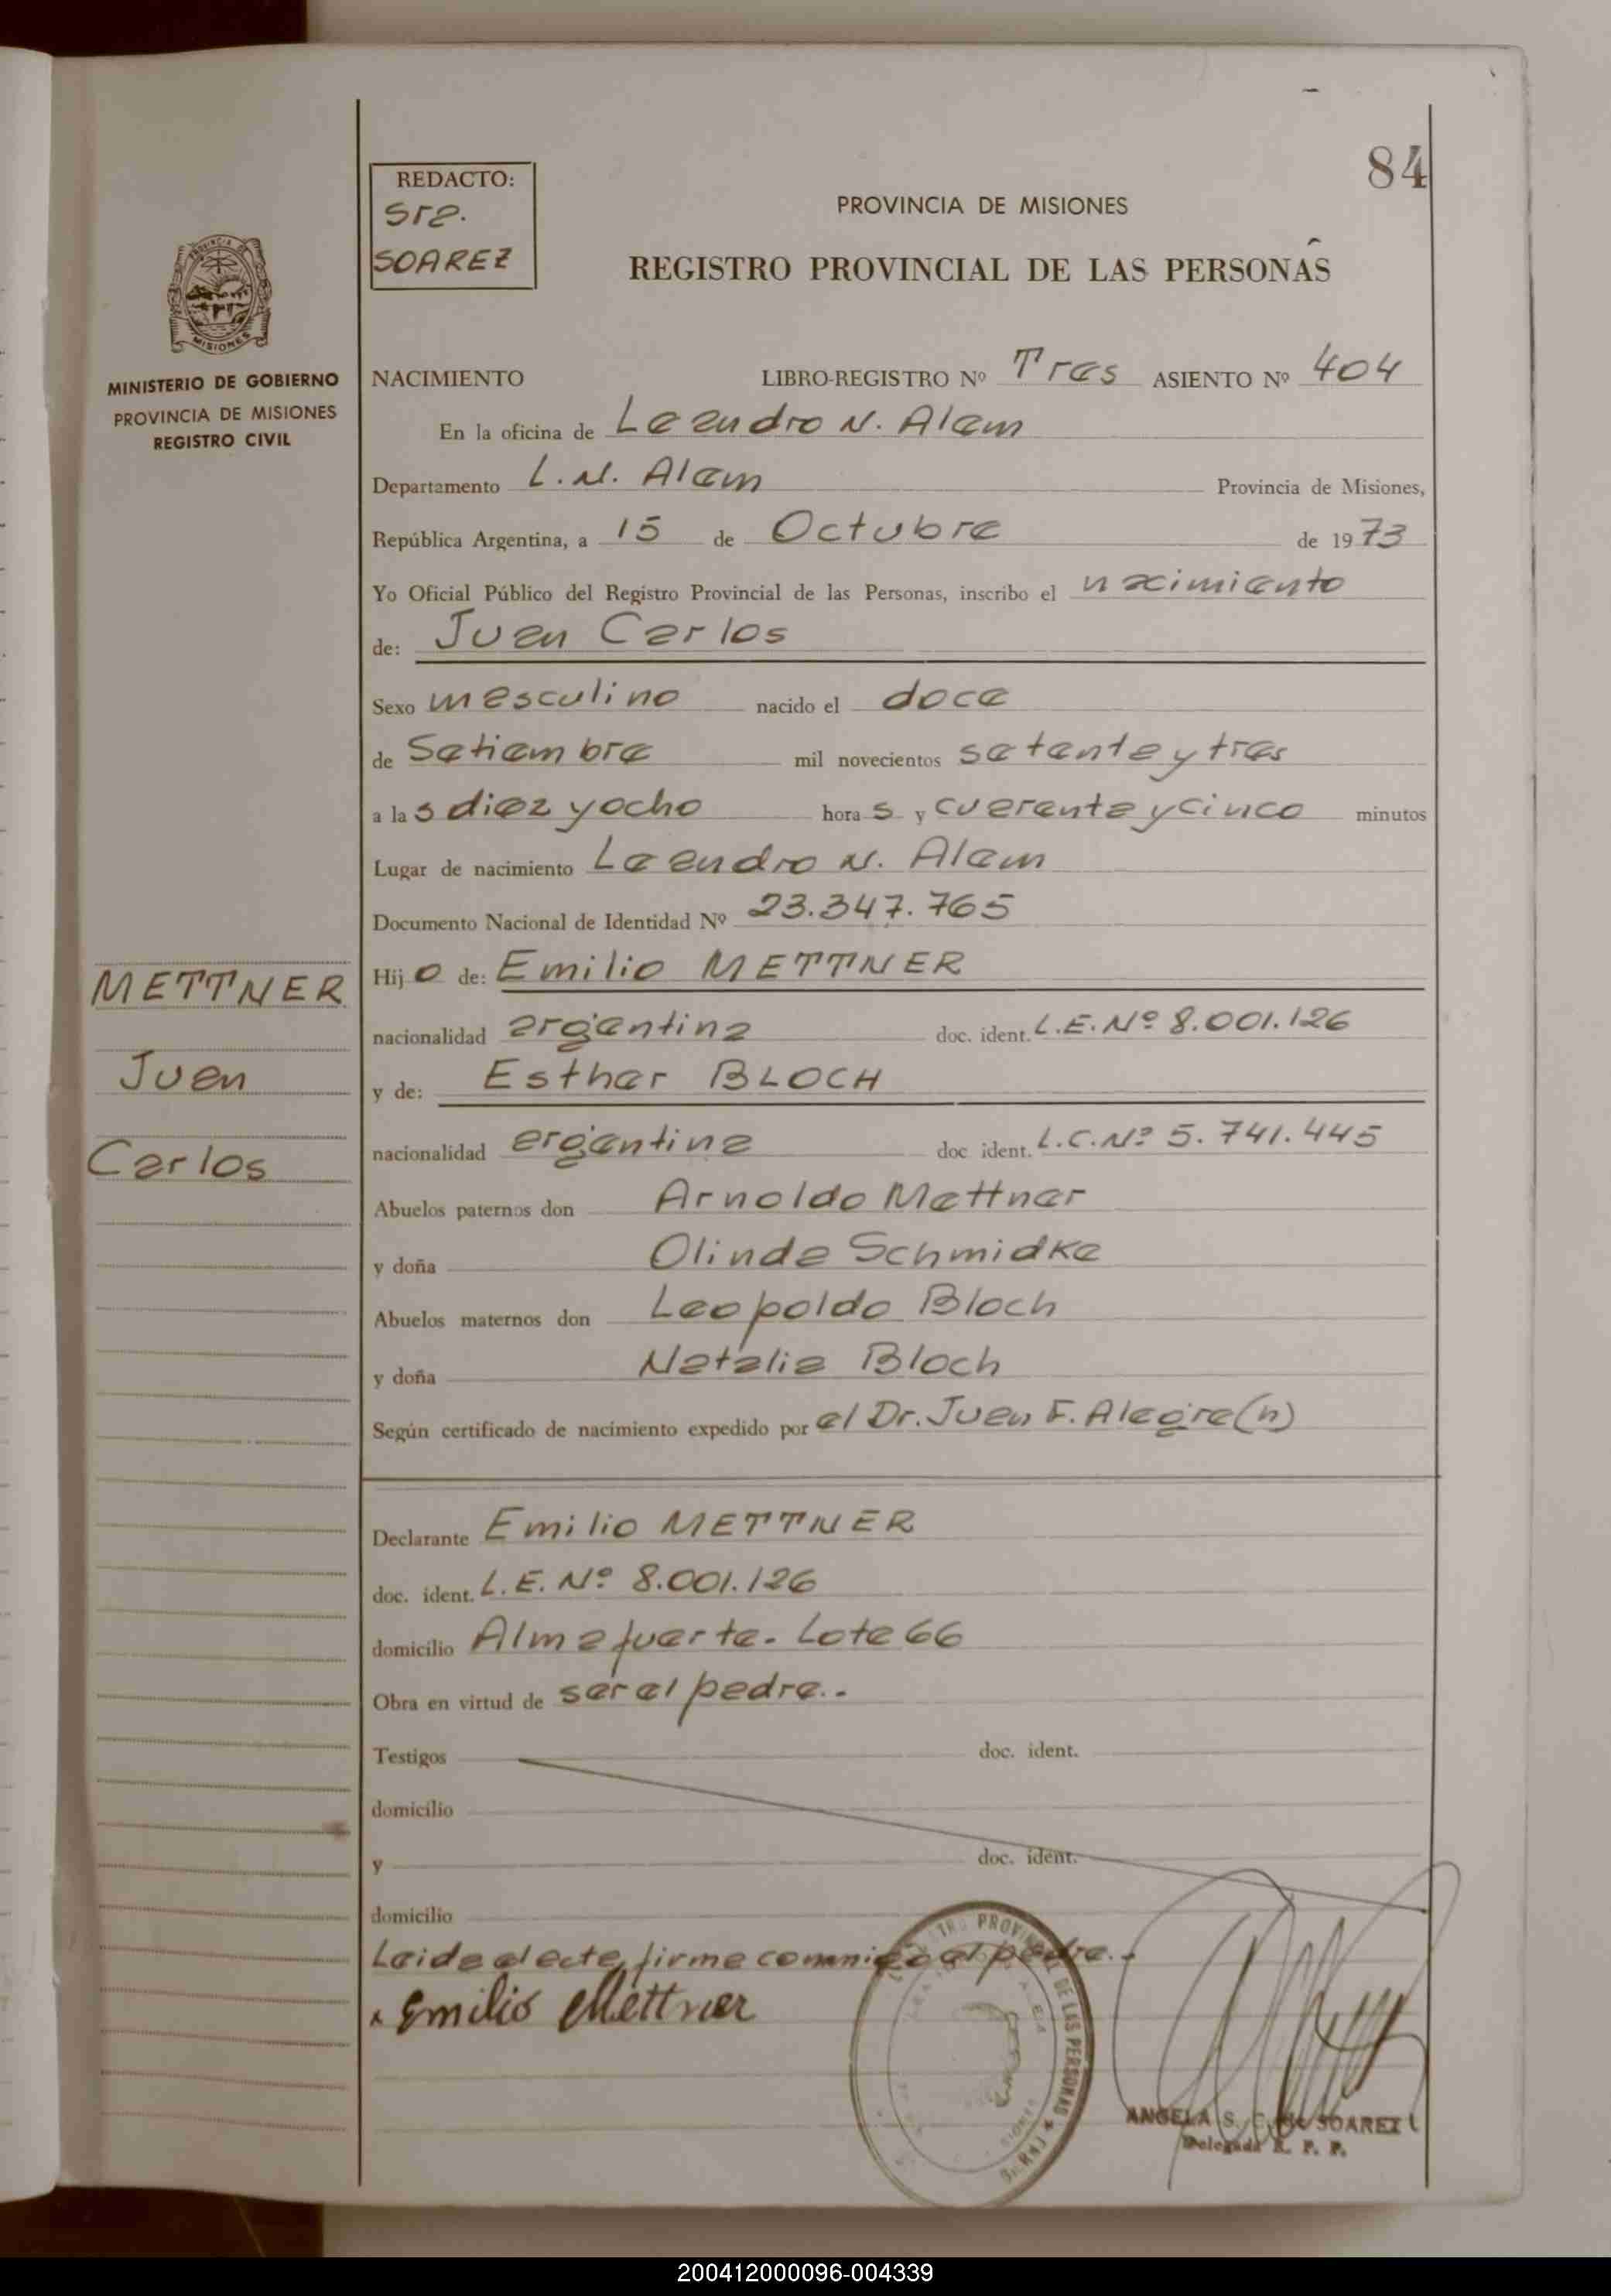 84
REDACTO:
Sra.
SOAREZ
PROVINCIA DE MISIONES
REGISTRO PROVINCIAL DE LAS PERSONAS
MISIONES
MINISTERIO DE GOBIERNO
PROVINCIA DE MISIONES
REGISTRO CIVIL
NACIMIENTO LIBRO-REGISTRO Nº Tres ASIENTO Nº 404
En la oficina de Leandro N. Alem
Departamento L.N. Alem Provincia de Misiones,
República Argentina, a 15 de Octubre de 1973
Yo Oficial Público del Registro Provincial de las Personas, inscribo el nacimiento
de: Juan Carlos
Sexo masculino nacido el doce
de Setiembre mil novecientos setenta y tres
a las diez y ocho horas y cuarenta y cinco minutos
Lugar de nacimiento Leandro N. Alem
Documento Nacional de Identidad Nº 23.347.765
METTNER
Juan
Carlos
Hijo de: Emilio METTNER
nacionalidad argentina doc. ident. L.E. Nº 8.001.126
y de: Esther BLOCH
nacionalidad argentina doc ident. L.C. Nº 5.741.445
Abuelos paternos don Arnoldo Mettner
y doña Olinda Schmidke
Abuelos maternos don Leopoldo Bloch
y doña Natalia Bloch
Según certificado de nacimiento expedido por el Dr. Juan F. Alegre (h)
Declarante Emilio METTNER
doc. ident. L.E. Nº 8.001.126
domicilio Almafuerte. Lote 66
Obra en virtud de ser el padre..
Testigos doc. ident.
domicilio
y doc. ident.
domicilio
Leida el acta, firma conmigo el padre..
Emilio Mettner
DE LAS PERSONAS
ANGELA S. de SOAREZ
Delegada R. P. P.
200412000096-004339